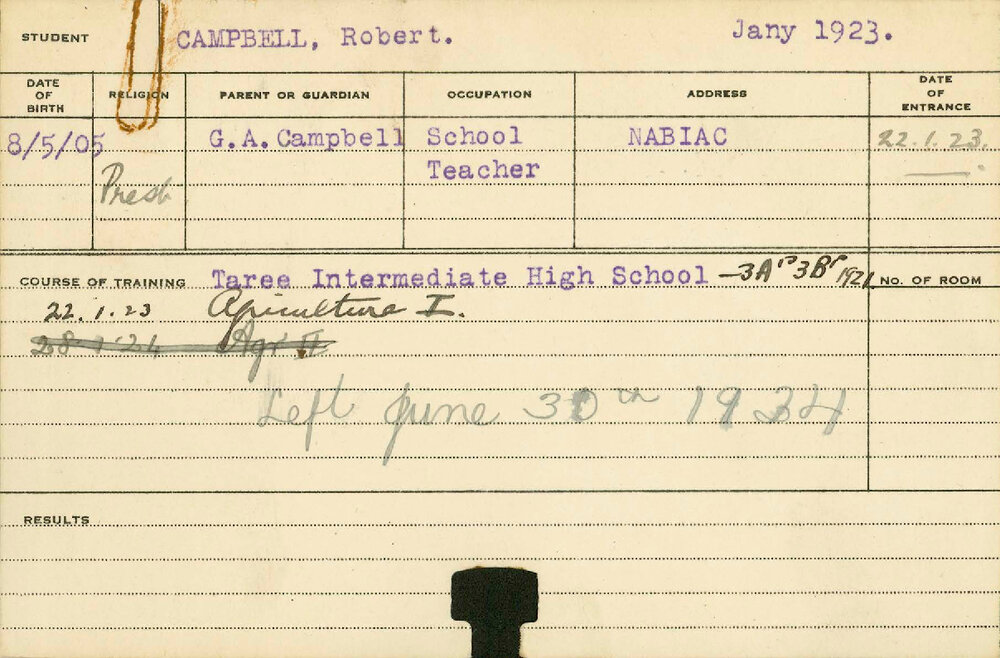 STUDENT CAMPBELL, Robert. Jany 1923.
DATE OF BIRTH RELIGION PARENT OR GUARDIAN OCCUPATION ADDRESS DATE OF ENTRANCE
8/5/05 G.A. Campbell School NABIAC 22.1.23.
Teacher
Presb
COURSE OF TRAINING Taree Intermediate High School - 3A's 3B's 1921 NO. OF ROOM
22.1.23 Agriculture I.
Agr II
Left June 30th 1924
RESULTS